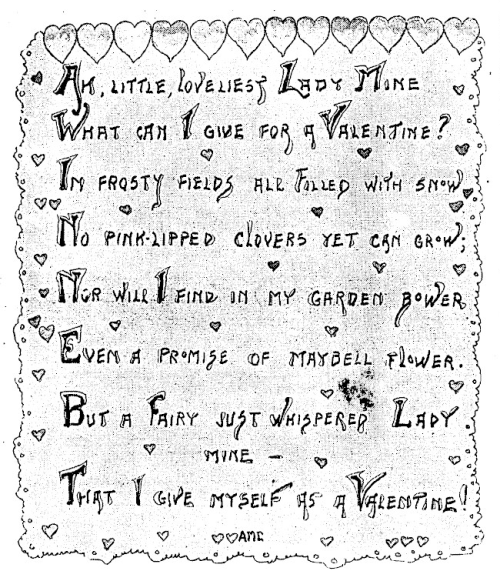 Ah, little, loveliest Lady Mine
What can I give for a Valentine?
In frosty fields all filled with snow
No pink-lipped clovers yet can grow;
Nor will I find in my garden bower
Even a promise of Maybell flower.
But a Fairy just whispered Lady
mine –
That I give myself as a Valentine!